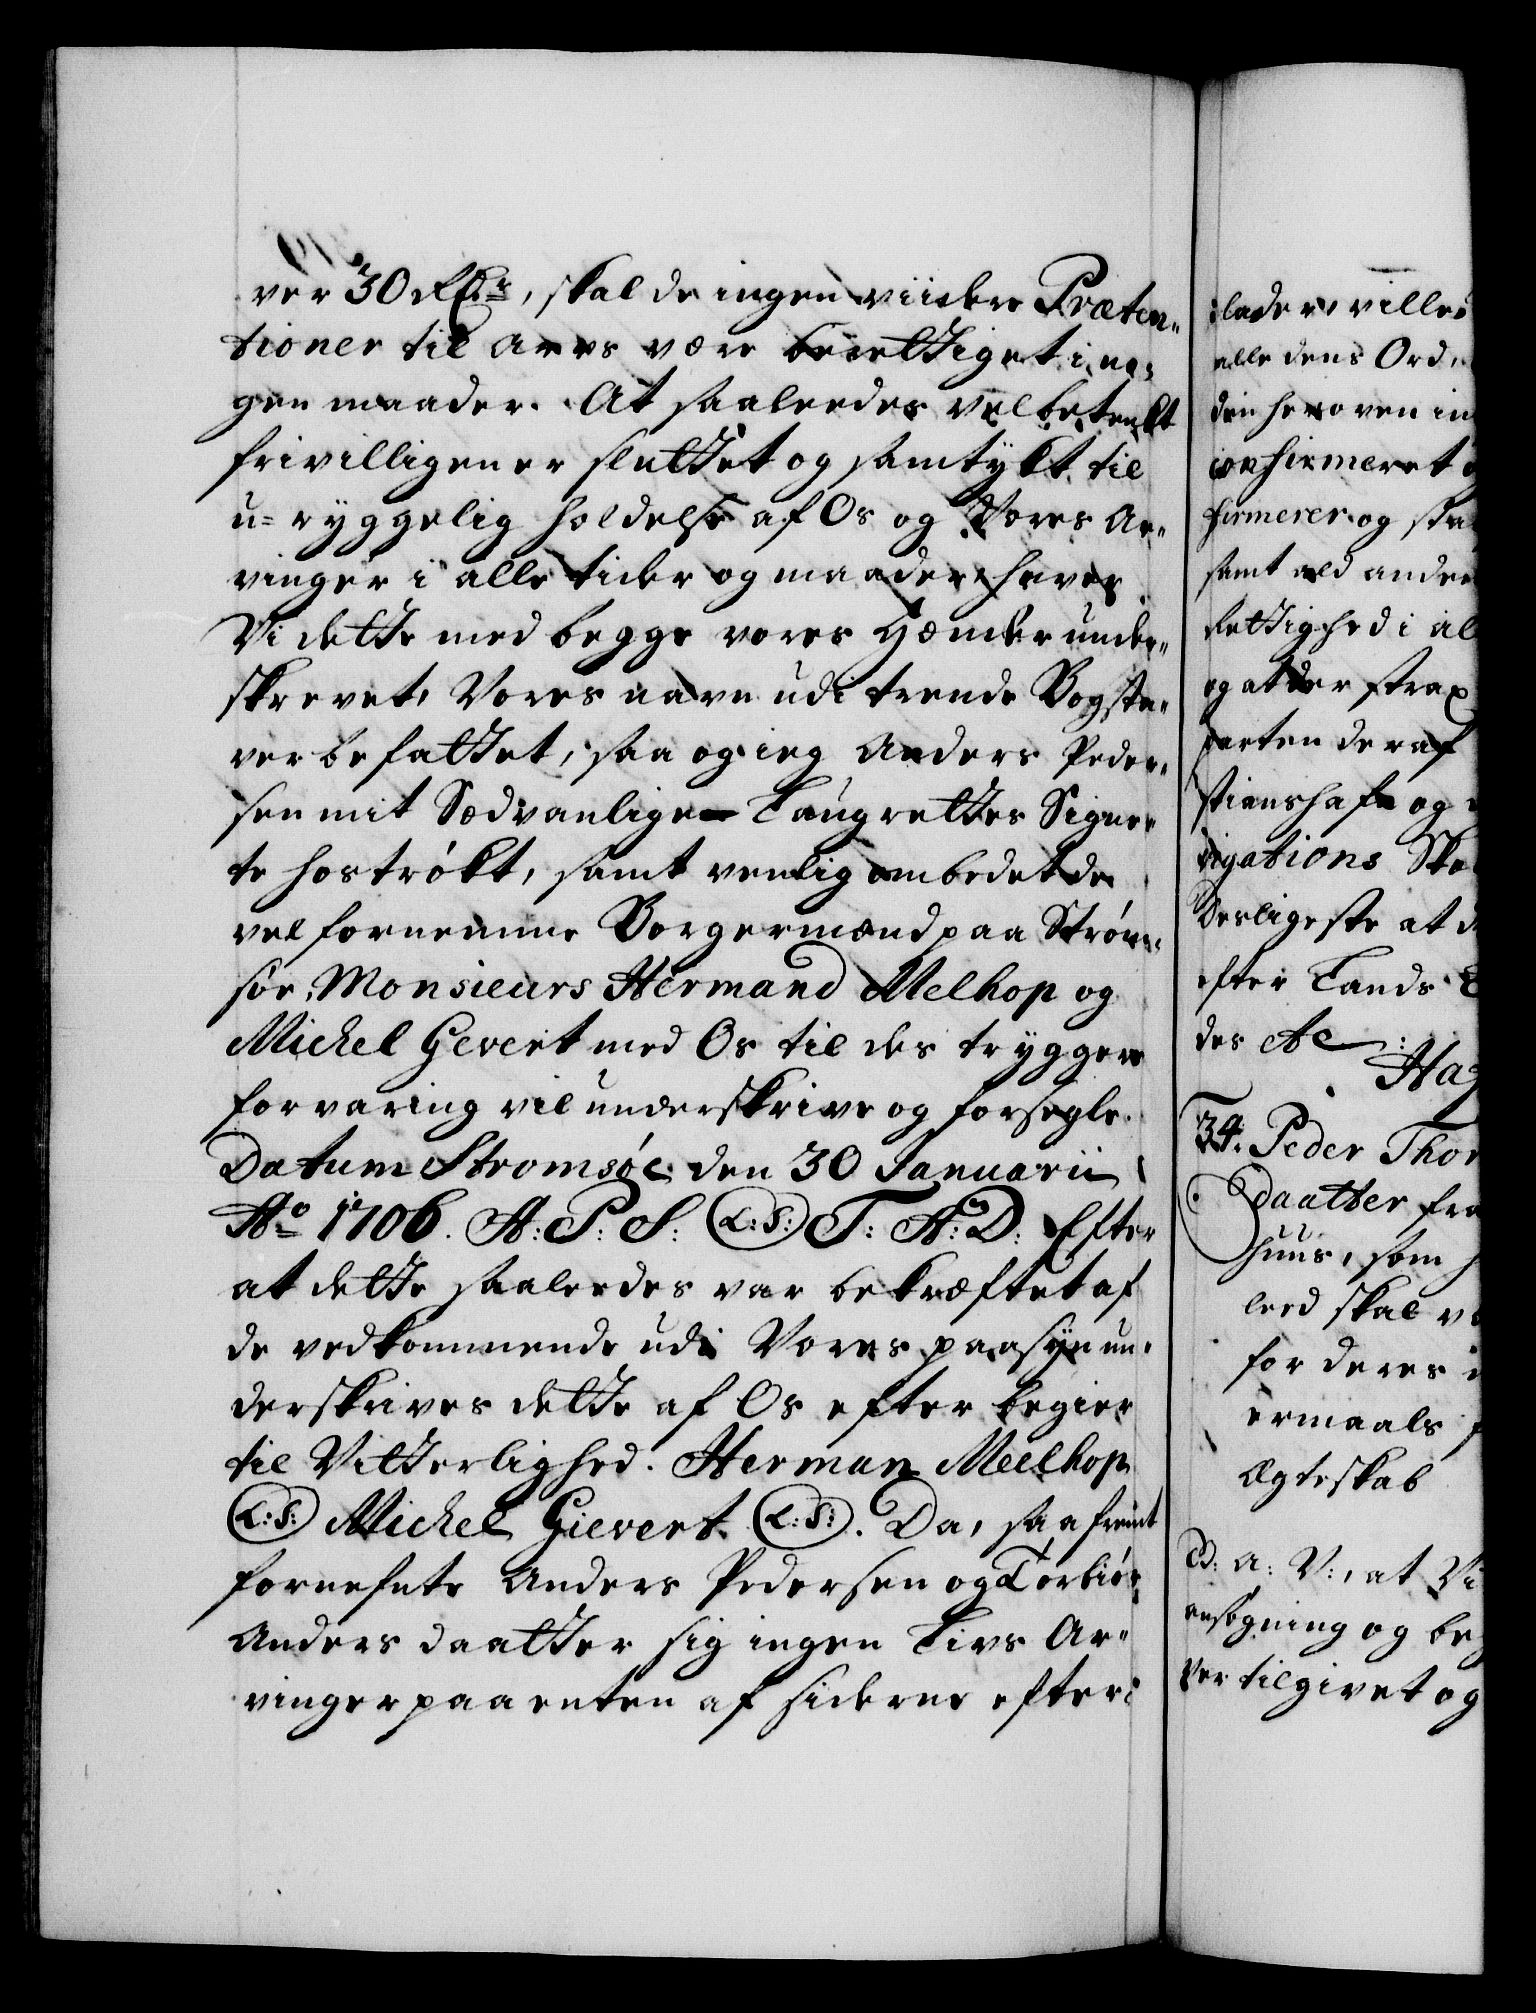 ver 30 Rdr, skal de ingen viidere Præten-
tioner til arvs være berettiget i no-
gen maader. At saaledes velbetenkt
frivilligen er sluttet og samtykt til
u-ryggelig holdelse af Os og Vores Ar-
vinger i alle tider og maader, haver
Vi dette med begge vores Hænder under-
skrevet, Vores navn udi trende Bogsta-
ver befattet, saa og ieg Anders Peder-
sen mit Sædvanlige Laugrettes Signe-
te hostrøkt, samt venlig ombedet de
velfornemme Borgermænd paa Strøm-
søe, Monsieurs Hermand Melhop og
Michel Gevert med Os til des tryggere
forvaring vil underskrive og forsegle.
Datum Stromsøe den 30 Januarii
Ao 1706. A: P: S: (L:S:) T: A: D: Efter
at dette saaleedes var bekræftet af
de vedkommende udi Vores paasyn un-
derskrives dette af Os efter begier
til Vitterlighed. Herman Meelhop
(L:S:) Michel Gievert (L:S:). Da, saafremt
fornefnte Anders Pedersen og Torbiør
Anders daatter sig ingen Livs Ar-
vinger paa enten af siderne efter-
lader, ville
alle dens Ord,
den heroven in
confirmeret
firmerer og sta
samt ald anden
Rettighed i al
og at der strax
parten deraf
stianshafn og
vigations Sko
Desligeste at d
efter Lands L
des etc:
Hag
34. Peder Thor
daatter fra
huus, som h
leed skal v
for deres
ermaals
Ægteskab
C5: a: V:, at Vi
ansøgning og beg
ver tilgivet og